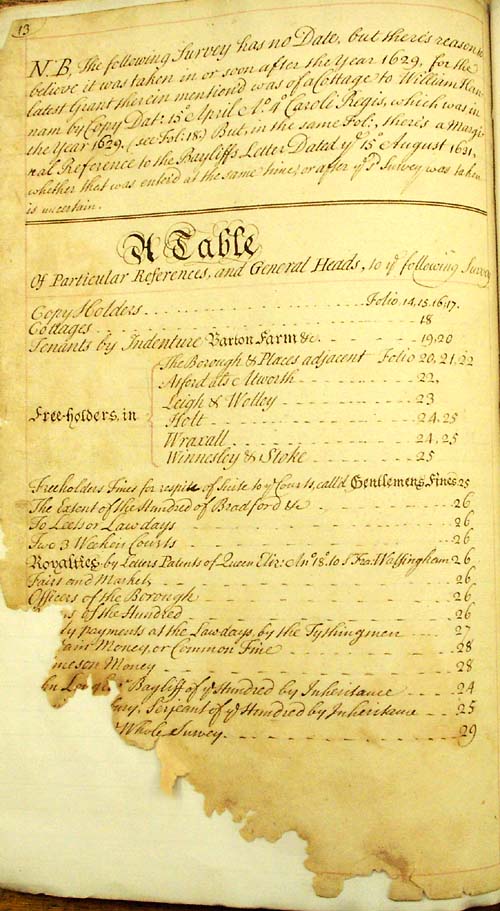 13
N.B, The following Survey has no Date, but there's reason to
believe it was taken in or soon after the Year 1629, for the
latest Grant therein mention'd was of a Cottage to William Han
nam by Copy Dat: 15° April A°. 4° Caroli Regis, which was in
the Year 1629. (see Fol: 18.) But, in the same Fol:, there's a Margi-
nal Reference to the Bayliffs Letter Dated yᵉ 15° August 1621,
whether that was enterd at the same time, or after yᵉ Sᵈ Survey was taken
is uncertain.
A Table
Of Particular References, and General Heads, to yᵉ following Survey
Copy Holders . . . . . . . . . . Folio, 14, 15, 16, 17.
Cottages . . . . . . . . . . 18
Tenants by Indenture Barton Farm &c. . . . . . . 19, 20
Free-holders, in
The Borough & Places adjacent Folio 20, 21, 22
Atford als Atworth - - - - - - 22,
Leigh & Wolley - - - - - - 23
Holt - - - - - - 24, 25
Wraxall - - - - - - 24, 25
Winnesley & Stoke - - - - - - 25
Freeholders Fines for respite of Suite to yᵉ Courts, call'd Gentlemens Fines 25
The Extent of the Hundred of Bradford &c - - - - - - 26
To Leets or Lawdays - - - - - - 26
Two 3 Weeken Courts - - - - - - 26
Royalties by Letters Patents of Queen Eliz: An°. 18° to Sʳ Fra: Walsingham 26
Fairs and Markets - - - - - - 26
Officers of the Borough - - - - - - 26
s of the Hundred - - - - - - 26
ly payments at the Lawdays, by the Tythingmen - - - 27
Money, or Common Fine - - - - - - 28
meson Money - - - - - - 28
Bayliff of yᵉ Hundred by Inheritance - - - - 24
bury, Serjeant of yᵉ Hundred by Inheritance - - - - 25
Whole Survey - - - - - - 29